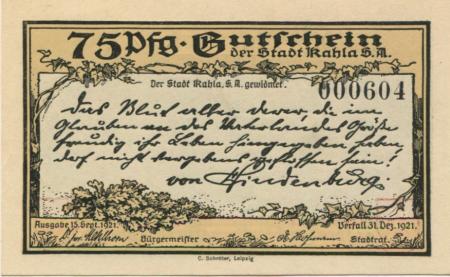 75 Pfg. Gutschein
der Stadt Kahla S.A.
Der Stadt Kahla, S.A. gewidmet.
000604
Das Blut aller derer, die im
Glauben an des Vaterlandes Größe
freudig ihr Leben hingegeben haben,
darf nicht vergebens geflossen sein!
von Hindenburg.
Ausgabe 15. Sept. 1921.
Verfall 31. Dez. 1921.
Bürgermeister
Stadtrat.
C. Schröter, Leipzig